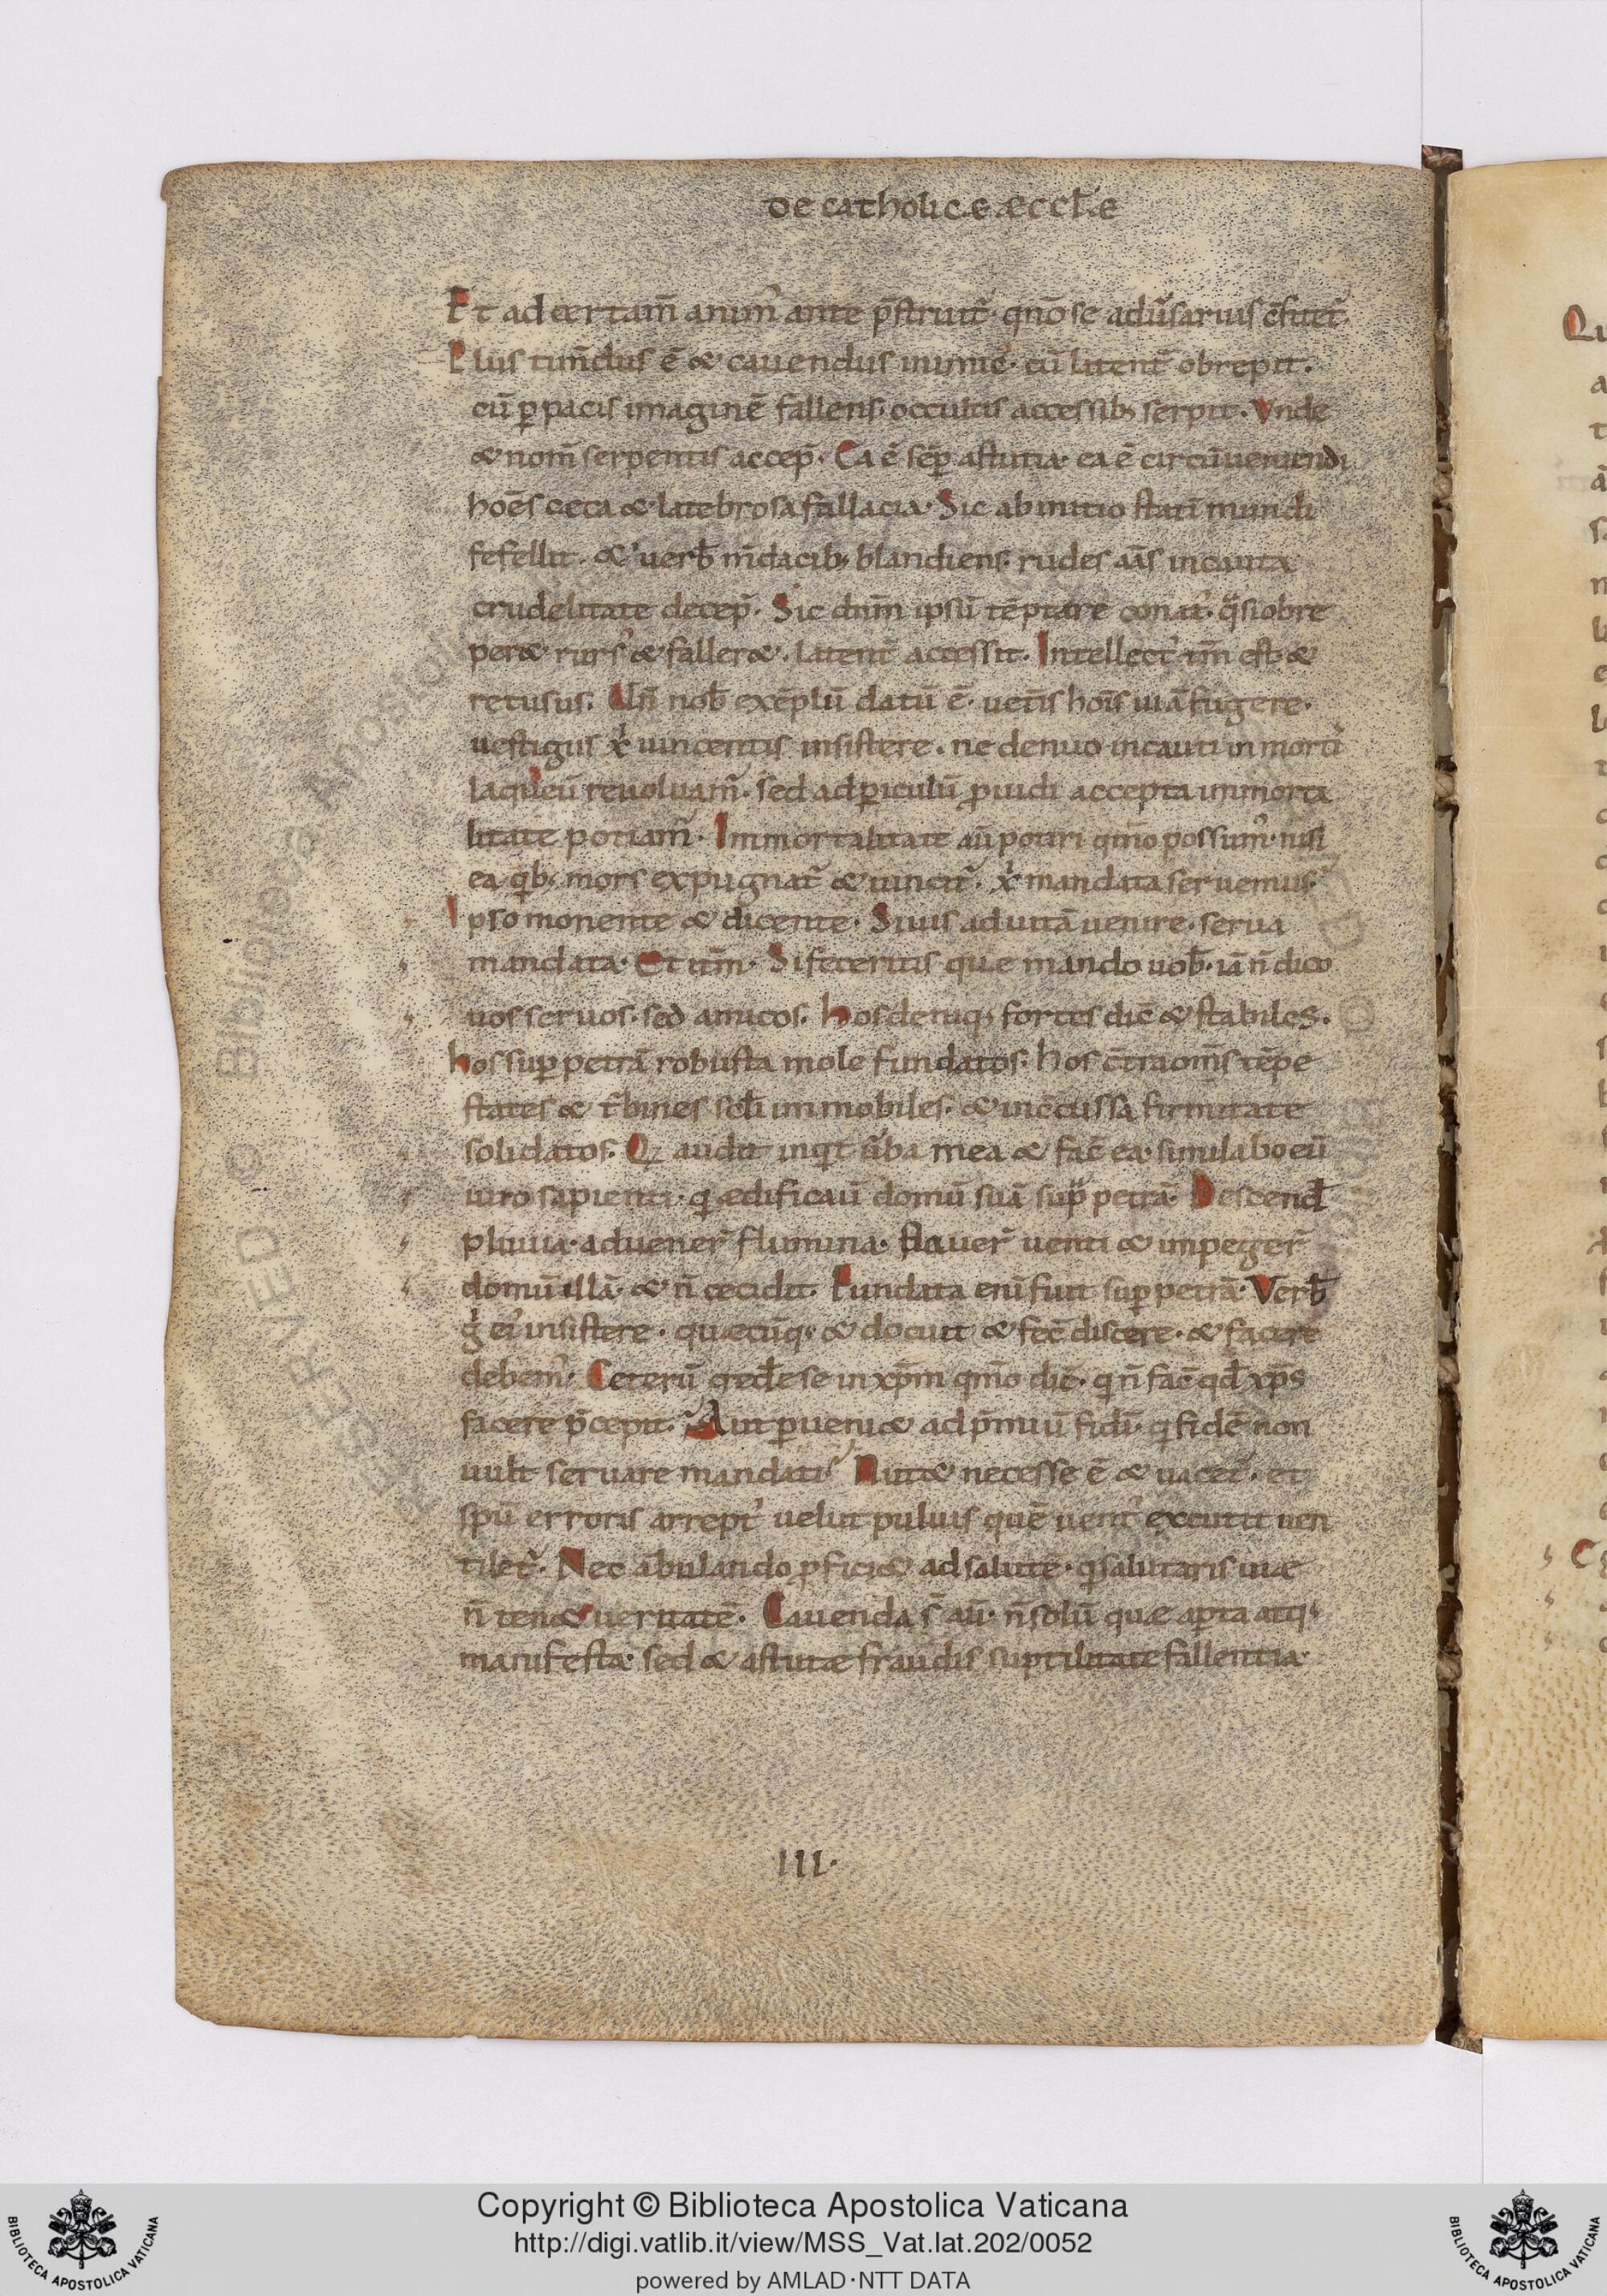 De catholicę æccl̄ę
Et ad certam̄ anim᾿ ante p̄struit᷑· qn̄o se adu᷑sarius c̄fitet᷑.
Plus tim̄dus ē & cauendus inimic᾿· cū latent᷑ obrepit.
cū ꝑ pacis imaginē fallens· occultis accessib; serpit. Vnde
& nom̄ serpentis accep̄. Ea ē sēp̄ astutia· ea ē circūueniendi
hoēs ceca & latebrosa fallacia. Sic ab initio statī mundi
fefellit. & uerb̄ m̄dacib; blandiens· rudes aīas incauta
crudelitate decep̄. Sic dn̄m ipsū tēptare conat᷑· qͣsi obre
per& rurs᾿ & faller&· latent᷑ accessit. Intellect᾿ tm̄ est &
retusus. Vn̄ nob̄ exēplū datū ē· uet̄is hoīs uiā fugere·
uestigiis x̄ᶦ uincentis insistere. ne denuo incauti in morti᾿
laqueū reuoluam᷑· sed ad ꝑiculū ꝓuidi accepta immorta
litate potiam᷑. Immortalitate aū potiri qm̄o possum᾿· nisi
ea qᶦb; mors expugnat᷑ & uincit᷑· x̄ᶦ mandata seruemus·
Ipso monente & dicente. Si uis ad uitā uenire· serua
mandata. Et itm̄. Si feceritis quæ mando uob̄· iā n̄ dico
uos seruos· sed amicos. Hos deniq; fortes dic̄ & stabiles.
Hos suꝑ petrā robusta mole fundatos. Hos c̄tra om̄s tēpe
states & t᷑bines sc̄li immobiles· & incc̄ussa firmitate
solidatos. Qᶦ audit inqᶦt u᷑ba mea & fac̄ ea· similabo eū
uiro sapienti· qᶦ ædificauī domū suā suꝑ petrā. Descend̄
pluuia· aduener᷑ flumina· flauer᷑ uenti & impeger᷑
domuī illā· & n̄ cecidit. Fundata enī fuit suꝑ petrā. Verb̄
gᶦ ei᾿ insistere· quæcūq; & docuit & fec̄ discere· & facere
debem᾿. Ceterū cred̄e se in xp̄m qm̄o dic̄· qᶦ n̄ fac̄ qd̄ xp̄s
facere p̄cepit. Aut ꝑueni& ad p̄miū fidēi· qᶦ fidē non
uult seruare mandati. Nut& necesse ē & uacet᷑· et
spū erroris arrept᾿ uelut puluis quē uent᾿ excutit uen
tilet᷑. Nec ābulando ꝓfici& ad salutē· qᶦ salutaris uiæ
n̄ ten& ueritatē. Cauenda s̄ aū· n̄ solū quæ aꝑta atq;
manifesta· sed & astutæ fraudis suptilitate fallentia
III.
Copyright © Biblioteca Apostolica Vaticana
http://digi.vatlib.it/view/MSS_Vat.lat.202/0052
powered by AMLAD·NTT DATA
BIBLIOTECA APOSTOLICA VATICANA
BIBLIOTECA APOSTOLICA VATICANA